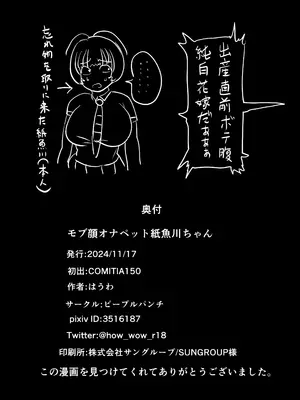 出産直前ボテ腹
純白花嫁だぁぁぁ
・・・・・
忘れ物を取りに来た紙魚川(本人)
奥付
モブ顔オナペット紙魚川ちゃん
発行:2024/11/17
初出:COMITIA150
作者:はうわ
サークル:ピープルパンチ
pixiv ID:3516187
Twitter:@how_wow_r18
印刷所:株式会社サングループ/SUNGROUP様
この漫画を見つけてくれてありがとうございました。